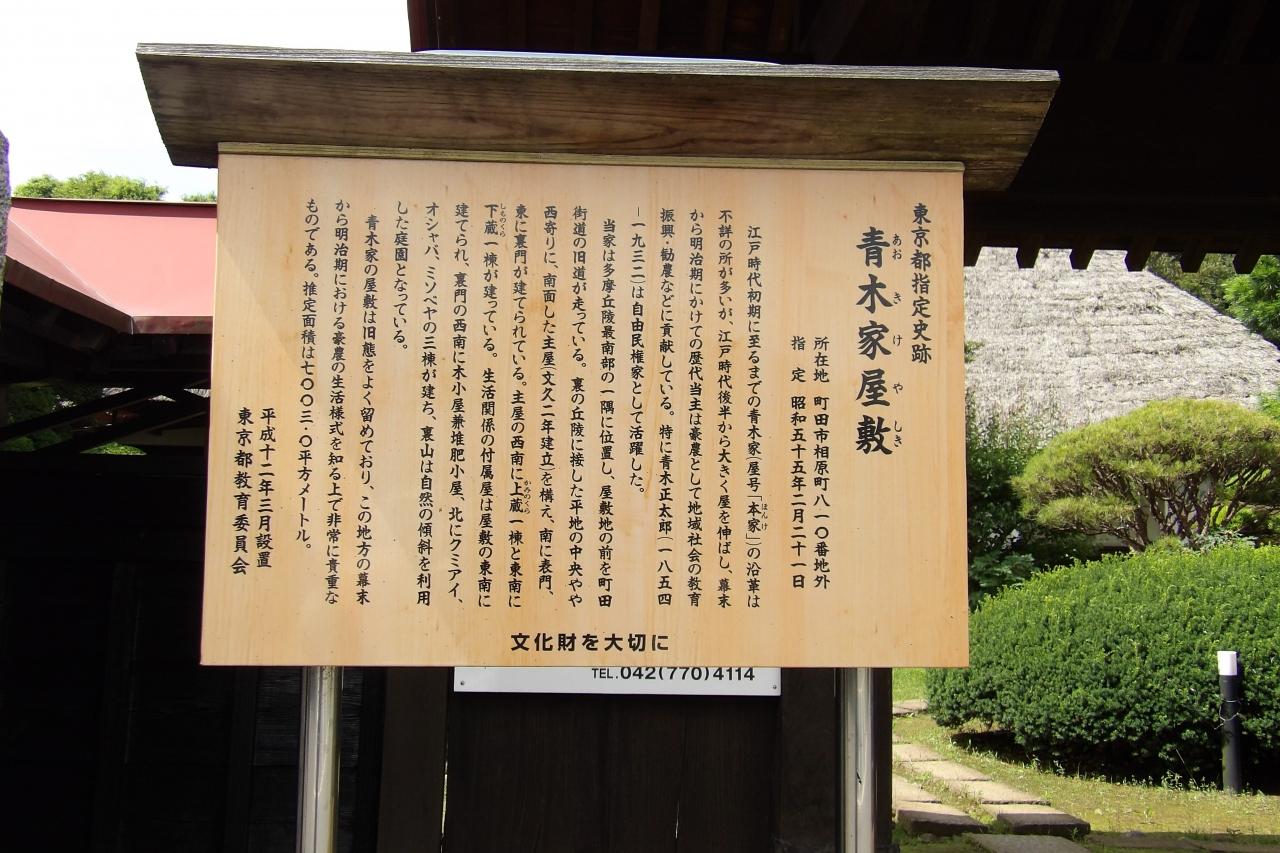 東京都指定史跡
青木家屋敷
あおきけやしき
所在地 町田市相原町八一〇番地外
指定 昭和五十五年二月二十一日
江戸時代初期に至るまでの青木家(屋号「本家」)の沿革は
ほんけ
不詳の所が多いが、江戸時代後半から大きく屋を伸ばし、幕末
から明治期にかけての歴代当主は豪農として地域社会の教育
振興・勧農などに貢献している。特に青木正太郎(一八五四
―一九三二)は自由民権家として活躍した。
当家は多摩丘陵最南部の一隅に位置し、屋敷地の前を町田
街道の旧道が走っている。裏の丘陵に接した平地の中央やや
西寄りに、南面した主屋(文久二年建立)を構え、南に表門、
東に裏門が建てられている。主屋の西南に上蔵一棟と東南に
かみのくら
下蔵一棟が建っている。生活関係の付属屋は屋敷の東南に
しものくら
建てられ、裏門の西南に木小屋兼堆肥小屋、北にクミアイ、
オシャバ、ミソベヤの三棟が建ち、裏山は自然の傾斜を利用
した庭園となっている。
青木家の屋敷は旧態をよく留めており、この地方の幕末
から明治期における豪農の生活様式を知る上で非常に貴重な
ものである。推定面積は七〇〇三・〇平方メートル。
平成十二年三月設置
東京都教育委員会
文化財を大切に
TEL.042(770)4114